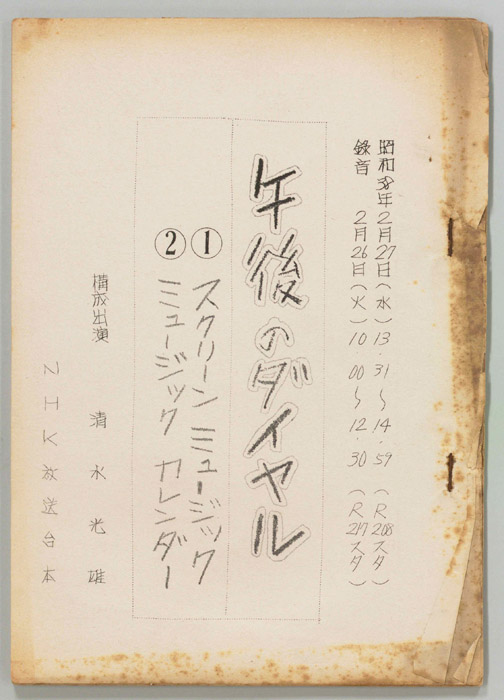 昭和38年2月27日(水)13.31〜14.59(R208スタ)
録音 2月26日(火)10 00〜12.30(R217スタ)
午後のダイヤル
①スクリーン ミュージック
②ミュージック カレンダー
構成出演 清水光雄
NHK放送台本